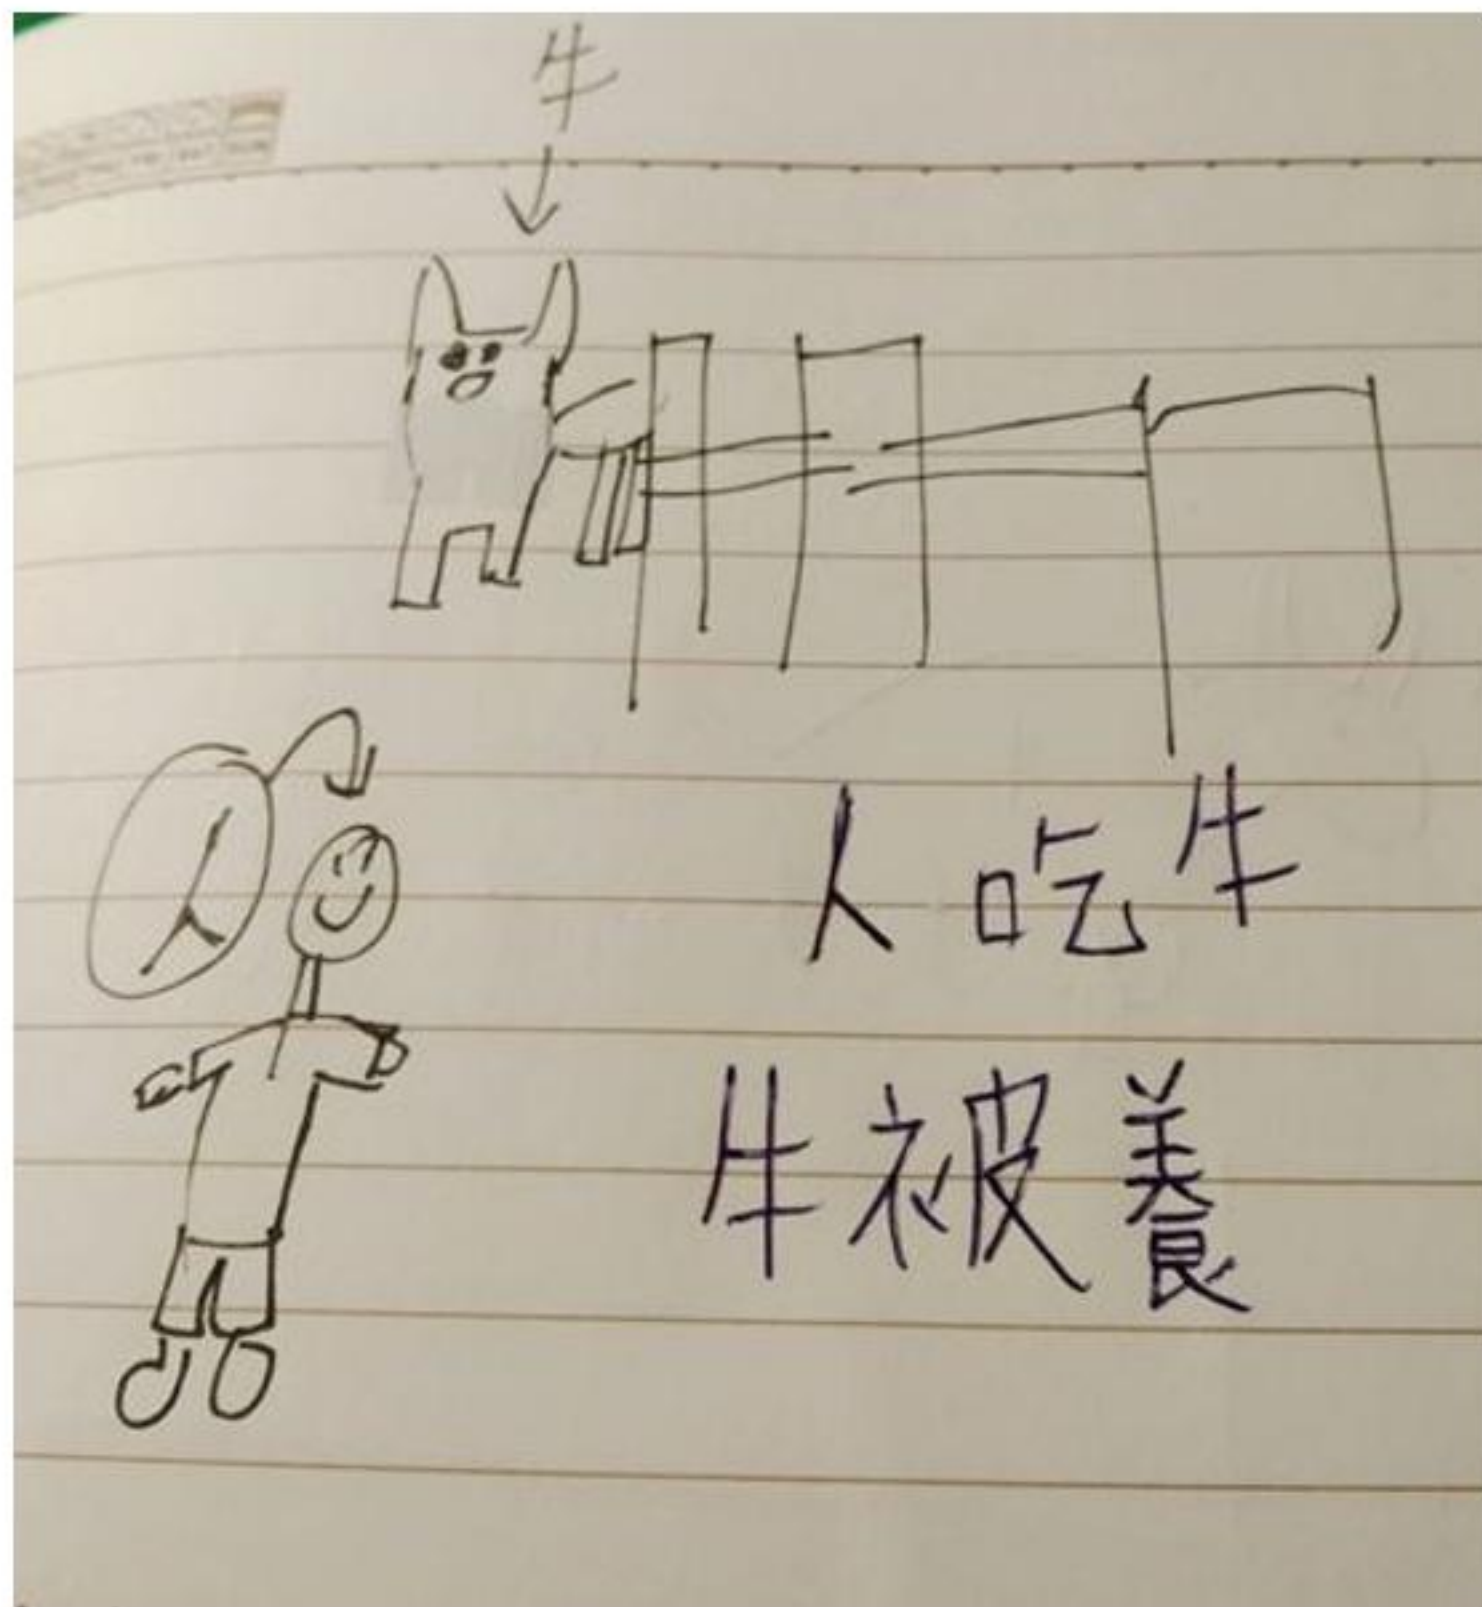 牛
人
人吃牛
牛被養